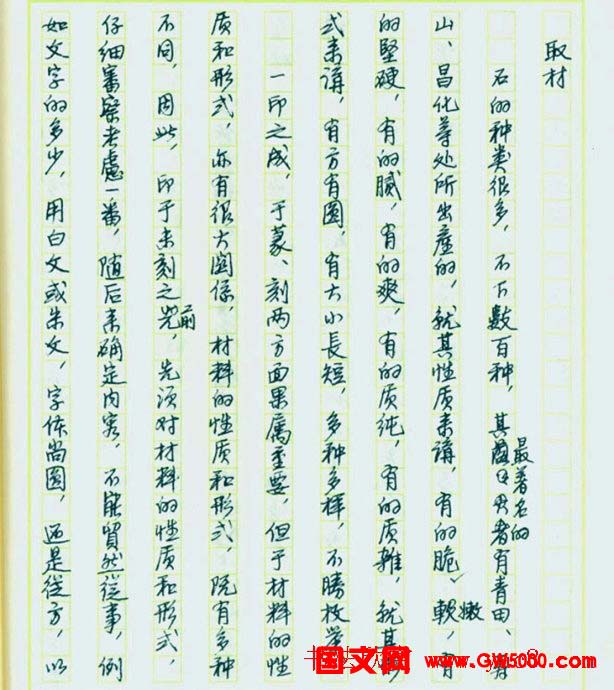 取材
石的种类很多，不下数百种，其最著名的者有青田、寿
山、昌化等处所出産的，就其性质来講，有的脆、嫩軟，有
的堅硬，有的膩，有的爽，有的质纯，有的质雜，就其形
式来講，有方有圆，有大小長短，多种多样，不勝枚举
一印之成，于篆、刻两方面果属重要，但于材料的性
质和形式，亦有很大関係，材料的性质和形式，既有多种
不同，因此，印于未刻之前，先须对材料的性质和形式，
仔细審察考慮一番，随后来确定内容，不能貿然從事，例
如文字的多少，用白文或朱文，字体尚圆，还是從方，以
国文网 www.GW5080.com